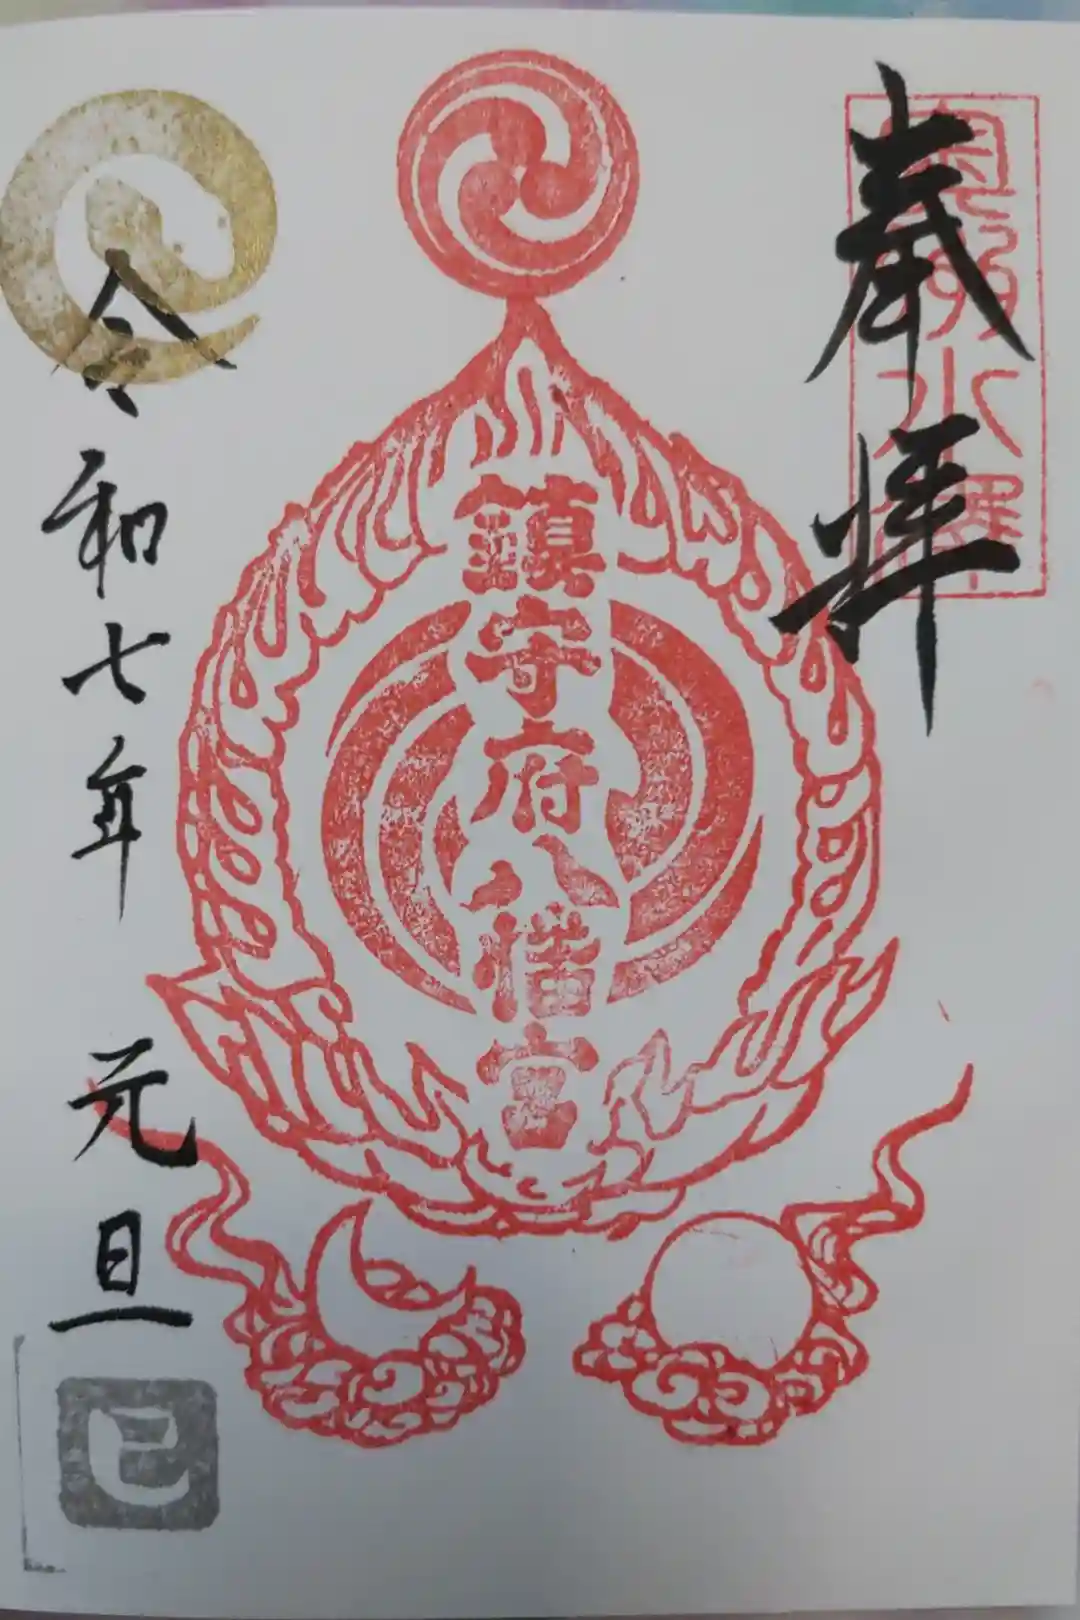 奉拝
鎮守府八幡宮
令和七年 元旦
巳